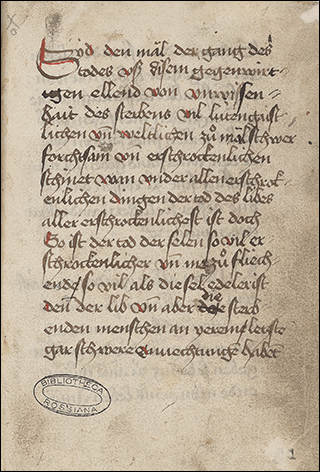 Syd den mal der gang des
todes vß disem gegenwirt-
igen ellend von vnwissen-
hait des sterbens vil lüten gaist-
lichen vn̄ weltlichen zů mal schwer
forchtsam vn̄ erschrockenlichen
schinet wan vnder allen erschrok-
enlichen dingen der tod des libes
aller erschrockenlichest ist doch
So ist der tod der selen so vil er
schrockenlicher vn̄ me zů fliech
ende so vil als die sel edeler ist
den der lib vn̄ aber die sterb
enden menschen an irem letste
gar schwere anvechtungē habēt
BIBLIOTHECA
ROSSIANA
1